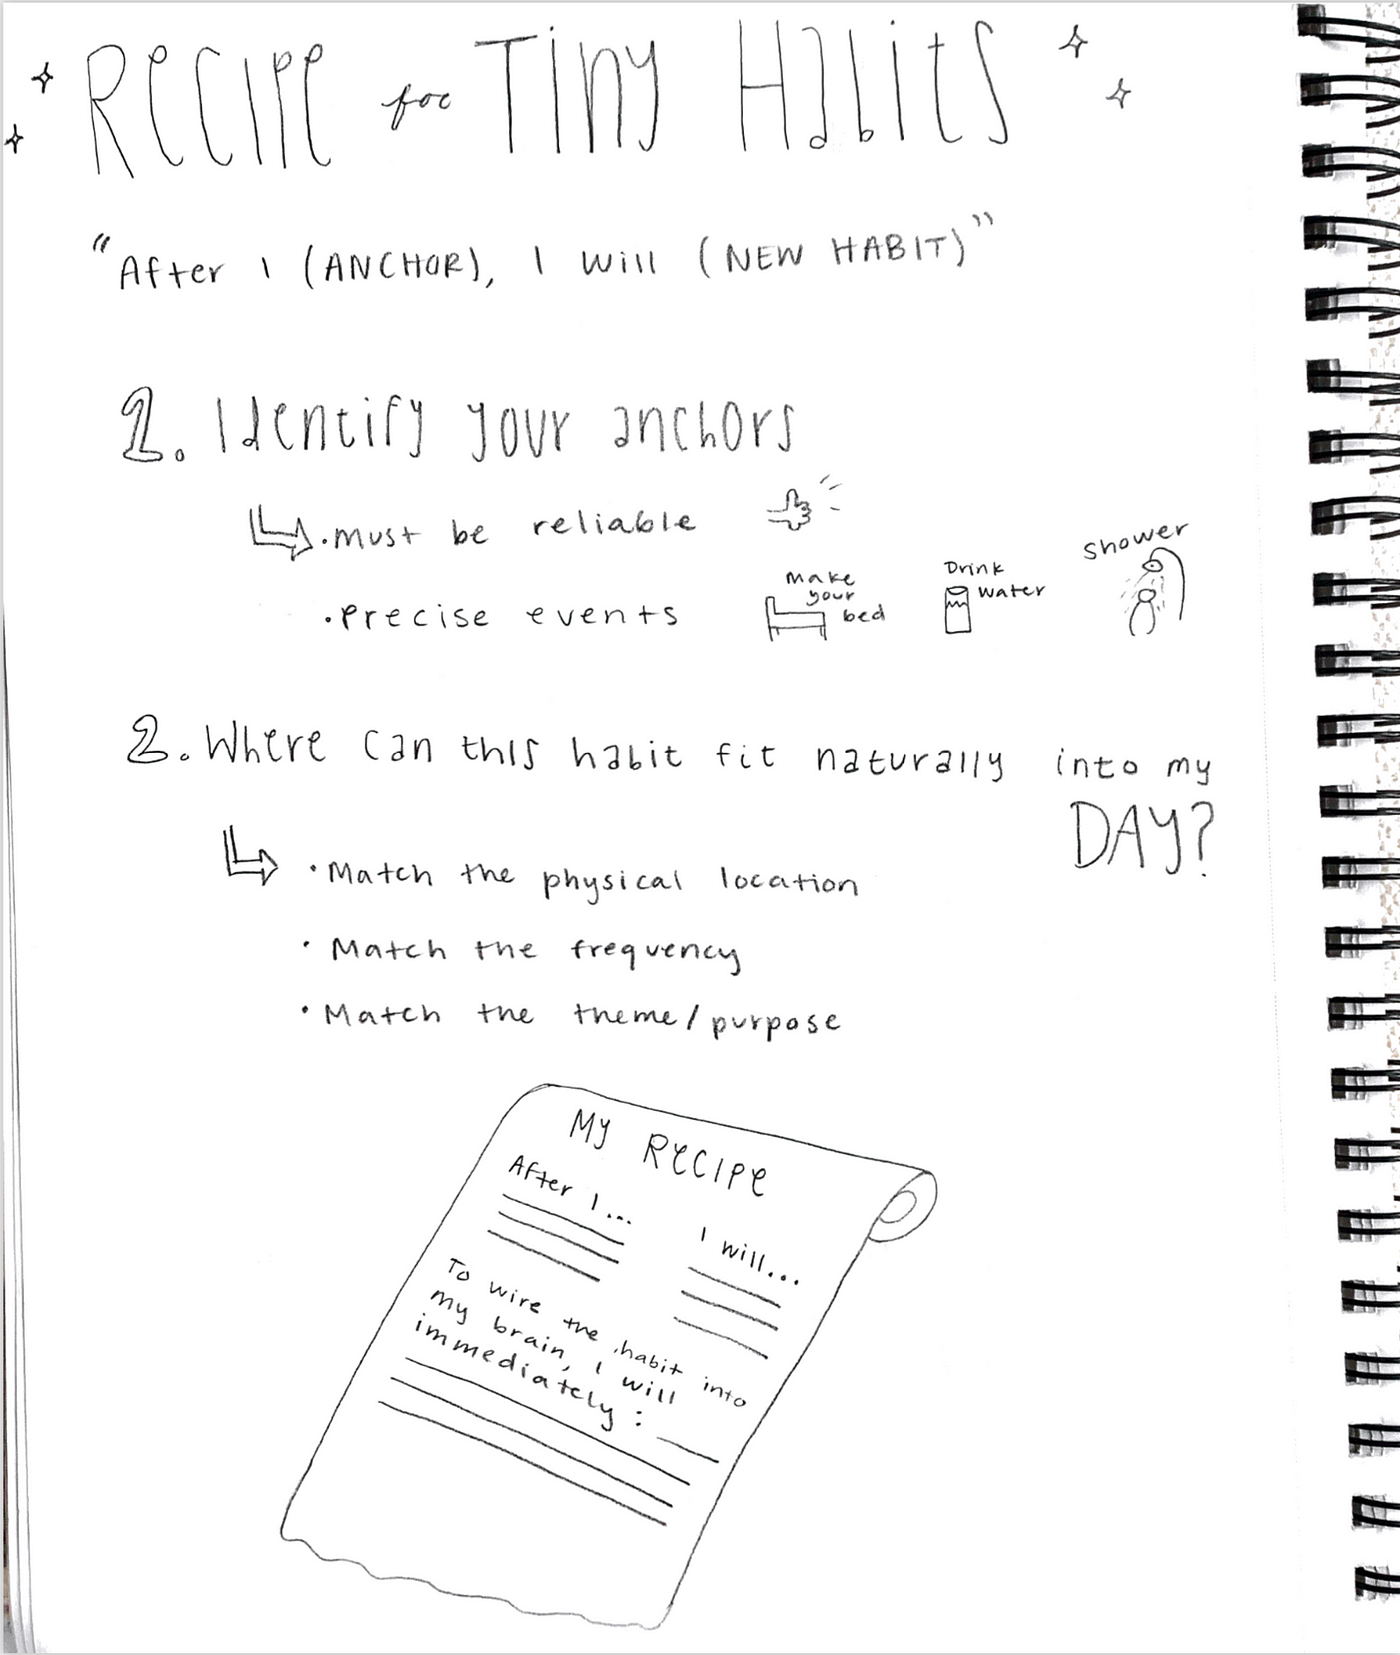 RECIPE for Tiny Habits
"After I (ANCHOR), I will (NEW HABIT)"
1. Identify your anchors
• must be reliable
• Precise events
Make your bed
Drink water
Shower
2. Where can this habit fit naturally into my
DAY?
• Match the physical location
• Match the frequency
• Match the theme/purpose
My RECIPE
After I...
I will...
To wire the habit into
my brain, I will
immediately: